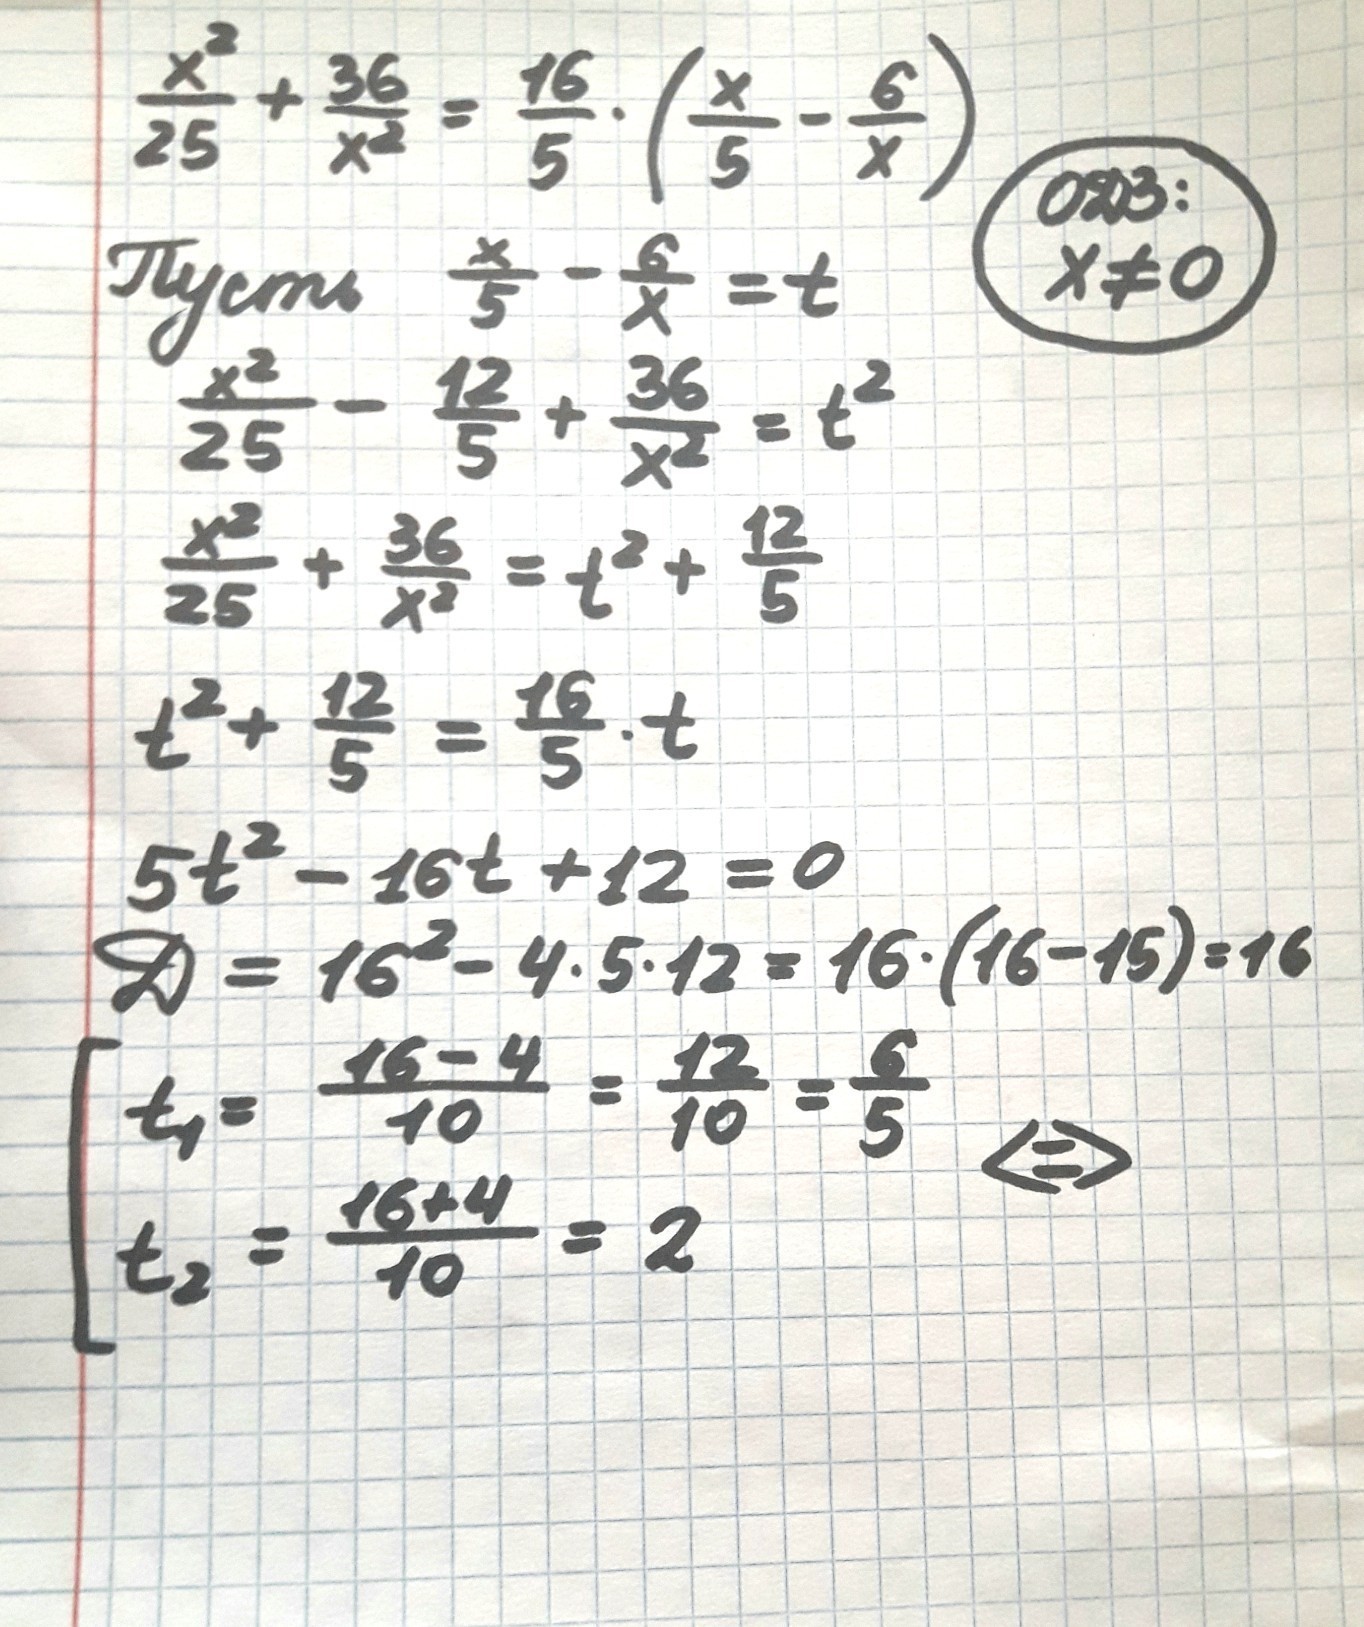 x²/25 + 36/x² = 16/5 · (x/5 - 6/x)
ОДЗ:
x ≠ 0
Пусть x/5 - 6/x = t
x²/25 - 12/5 + 36/x² = t²
x²/25 + 36/x² = t² + 12/5
t² + 12/5 = 16/5 · t
5t² - 16t + 12 = 0
D = 16² - 4·5·12 = 16·(16-15) = 16
[ t₁ = (16-4)/10 = 12/10 = 6/5
<=>
t₂ = (16+4)/10 = 2